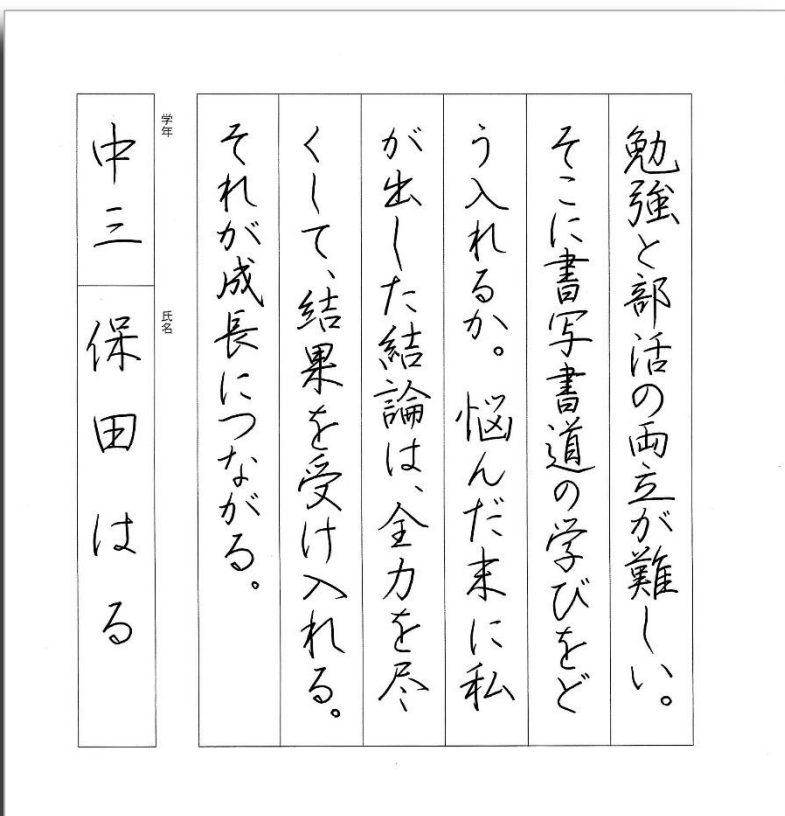 勉強と部活の両立が難しい。
そこに書写書道の学びをど
う入れるか。悩んだ末に私
が出した結論は、全力を尽
くして、結果を受け入れる。
それが成長につながる。
学年
中三
氏名
保田はる